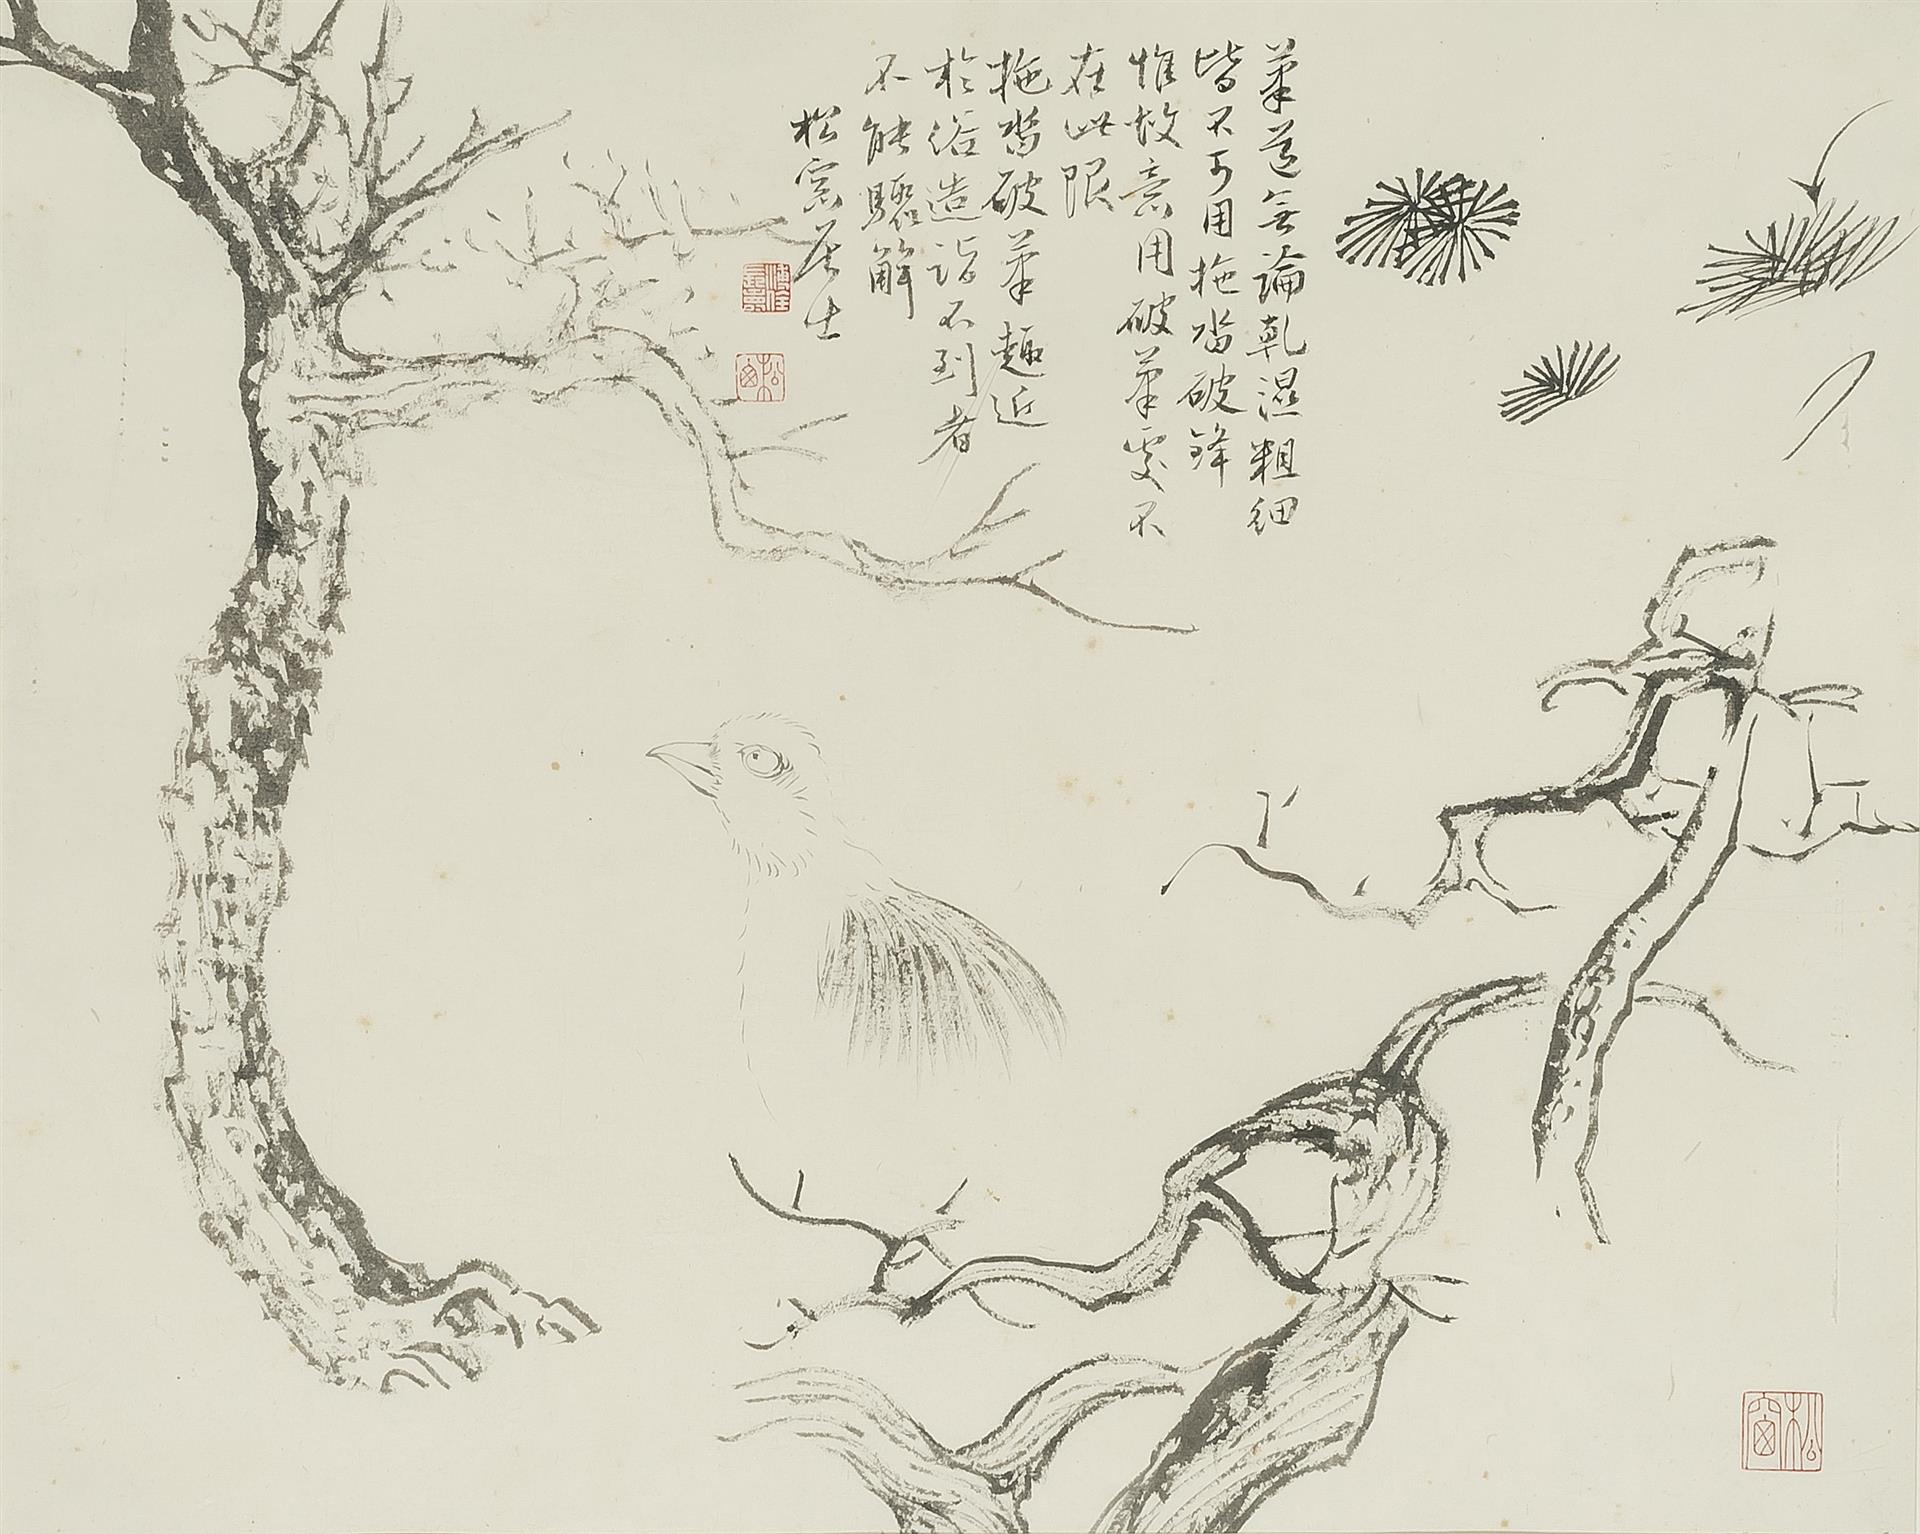 筆道無論乾濕粗細
皆不可用拖沓破鋒
惟故意用破筆處不
在此限
拖沓破筆趣近
於俗造詣不到者
不能驟解
松窗居士
松窗
松窗